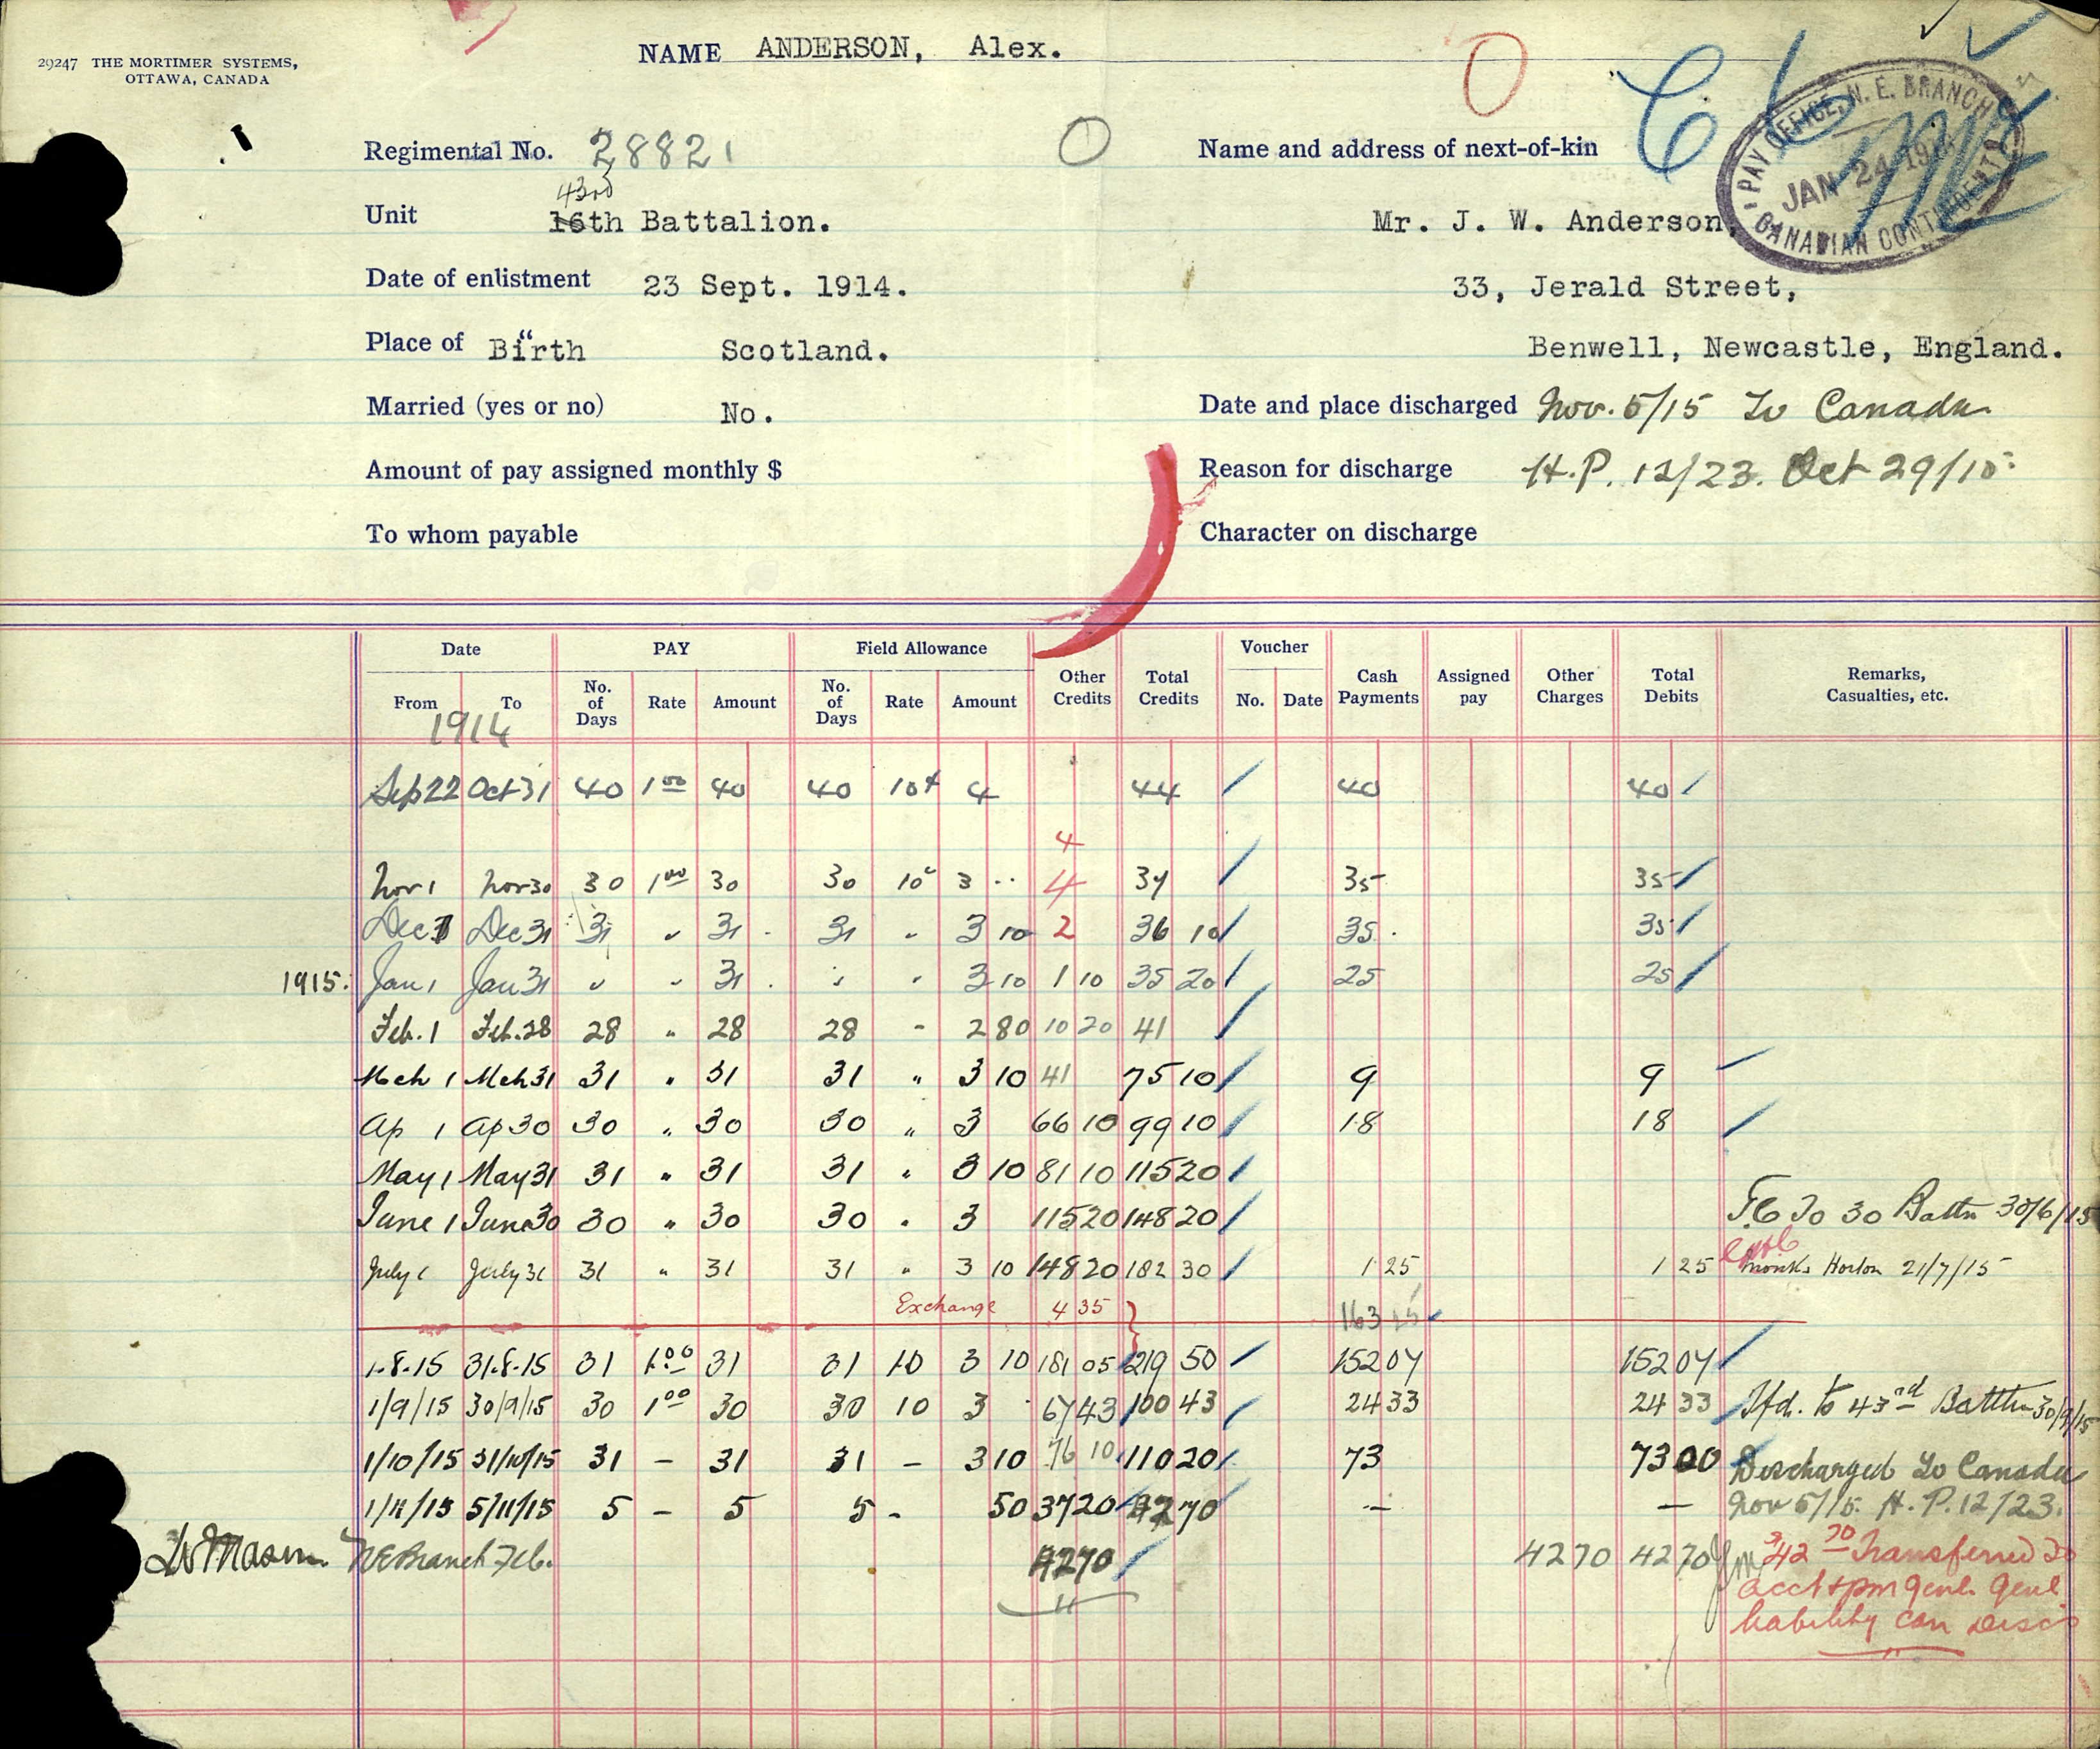 29247 THE MORTIMER SYSTEMS,
OTTAWA, CANADA
NAME ANDERSON, Alex.
Regimental No. 28821
Name and address of next-of-kin
PAY OFFICE, N. E. BRANCH
JAN 24
CANADIAN CONTINGENTS
43rd
Unit 16th Battalion.
Mr. J. W. Anderson,
Date of enlistment 23 Sept. 1914.
33, Jerald Street,
Place of " Birth Scotland.
Benwell, Newcastle, England.
Married (yes or no) No.
Date and place discharged Nov. 5/15 To Canada
Amount of pay assigned monthly $
Reason for discharge H.P. 12/23. Oct 29/15
To whom payable
Character on discharge
Date PAY Field Allowance Other Credits Total Credits Voucher Cash Payments Assigned pay Other Charges Total Debits Remarks, Casualties, etc.
From To No. of Days Rate Amount No. of Days Rate Amount No. Date
1914
Sep 22 Oct 31 40 1 00 40 40 10 4 44 40 40
4
Nov 1 Nov 30 30 1 00 30 30 10c 3 .. 4 37 35 35
Dec 1 Dec 31 31 " 31 31 " 3 10 2 36 10 35 35
1915. Jan 1 Jan 31 " " 31 " " 3 10 1 10 35 20 25 25
Feb. 1 Feb. 28 28 " 28 28 " 2 80 10 20 41
Mch 1 Mch 31 31 " 31 31 " 3 10 41 75 10 9 9
Ap 1 Ap 30 30 " 30 30 " 3 66 10 99 10 18 18
May 1 May 31 31 " 31 31 " 3 10 81 10 115 20
June 1 June 30 30 " 30 30 " 3 115 20 148 20 To 30 Battn 30/6/15
July 1 July 31 31 " 31 31 " 3 10 148 20 182 30 1 25 1 25 Monks Horton 21/7/15
Exchange 4 35 163 15
1.8.15 31.8.15 31 1.00 31 31 10 3 10 181 05 219 50 152 07 152 07
1/9/15 30/9/15 30 1 00 30 30 10 3 67 43 100 43 24 33 24 33 Tfd. to 43rd Battn 30/9/15
1/10/15 31/10/15 31 - 31 31 - 3 10 76 10 110 20 73 73 00 Discharged To Canada
1/11/15 5/11/15 5 - 5 5 - 50 37 20 42 70 - - Nov 5/15. H.P. 12/23.
NE Branch Feb. 42 70 42 70 42 70 $42 70 Transferred To
acct + pm genl. genl
liability can Disc's